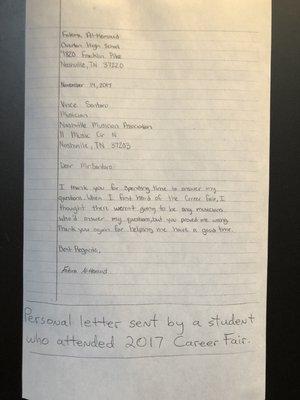 Fatima Al-Hemoud
Overton High School
4820 Franklin Pike
Nashville, TN 37220
November 14, 2017
Vince Santoro
Musician
Nashville Musician Association
11 Music Cir N
Nashville, TN 37203
Dear Mr. Santoro:
I thank you for spending time to answer my
questions. When I first heard of the Career Fair, I
thought there weren't going to be any musicians
who'd answer my questions, but you proved me wrong.
Thank you again for helping me have a good time.
Best Regards,
Personal letter sent by a student
who attended 2017 Career Fair.